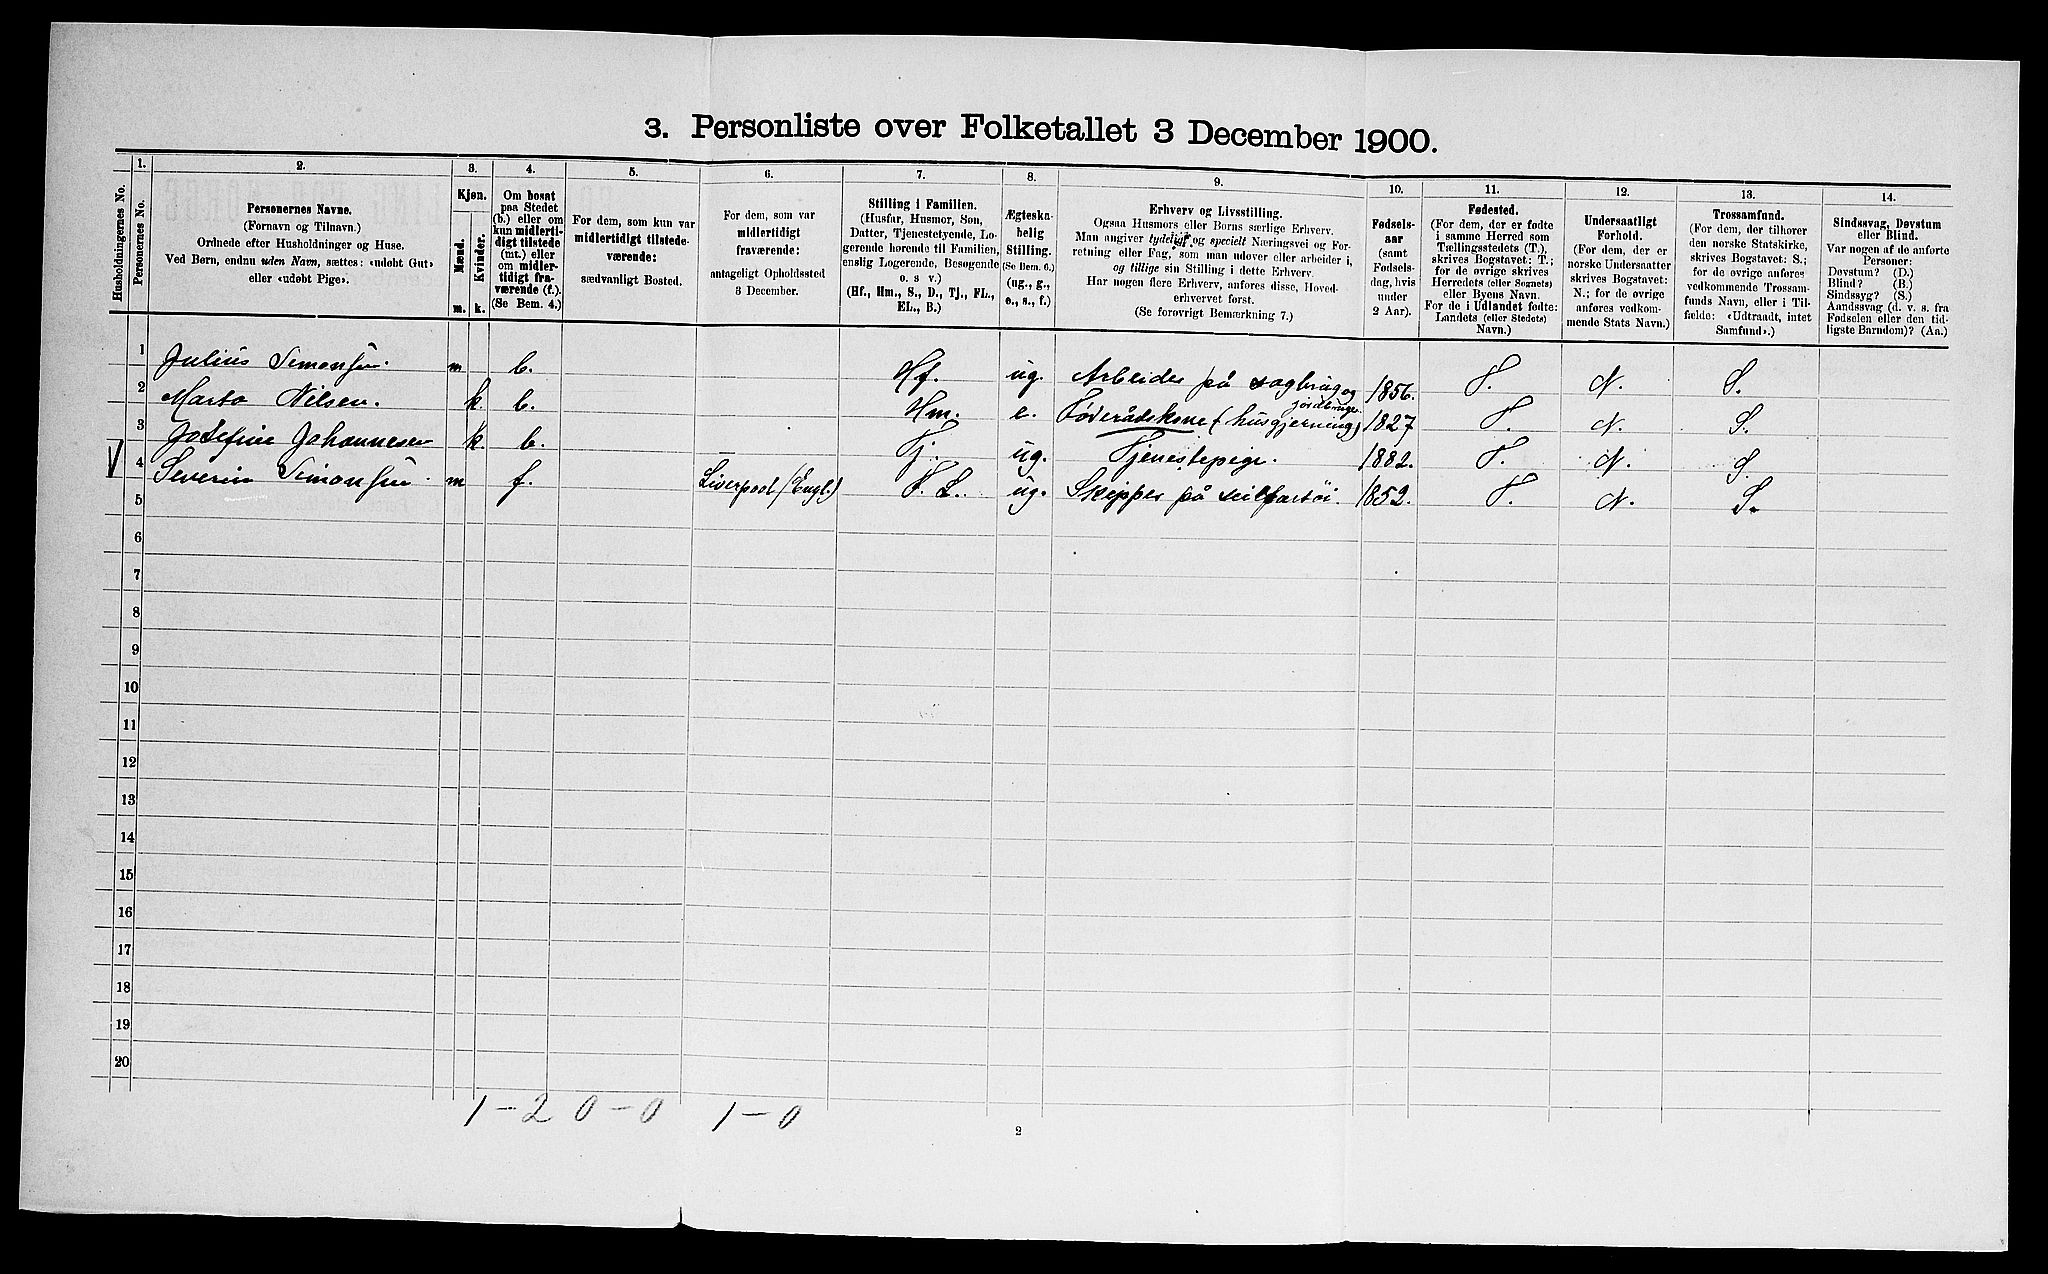 3. Personliste over Folketallet 3 December 1900.
Husholdningernes No.
1.
Personernes No.
2.
Personernes Navne.
(Fornavn og Tilnavn.)
Ordnede efter Husholdninger og Huse.
Ved Børn, endnu uden Navn, sættes: «udøbt Gut»
eller «udøbt Pige».
3.
Kjøn.
Mænd.
Kvinder.
m. k.
4.
Om bosat
paa Stedet
(b.) eller om
kun midlerti-
digt tilstede
(mt.) eller
om midler-
tidigt fra-
værende (f.).
(Se Bem. 4.)
5.
For dem, som kun var
midlertidigt tilstede-
værende:
sædvanligt Bosted.
6.
For dem, som var
midlertidigt
fraværende:
antageligt Opholdssted
3 December.
7.
Stilling i Familien.
(Husfar, Husmor, Søn,
Datter, Tjenestetyende, Lo-
gerende hørende til Familien,
enslig Logerende, Besøgende
o. s v.)
(Hf., Hm., S., D., Tj., FL.,
EL., B.)
8.
Ægteska-
belig
Stilling.
(Se Bem. 6.)
(ug., g.,
e., s., f.)
9.
Erhverv og Livsstilling.
Ogsaa Husmors eller Børns særlige Erhverv.
Man angiver tydeligt og specielt Næringsvei og For-
retning eller Fag, som man udøver eller arbeider i,
og tillige sin Stilling i dette Erhverv.
Har nogen flere Erhverv, anføres disse, Hoved-
erhvervet først.
(Se forøvrigt Bemærkning 7.)
10.
Fødsels-
aar
(samt
Fødsels-
dag, hvis
under
2 Aar).
11.
Fødested.
(For dem, der er fødte
i samme Herred som
Tællingsstedets (T.),
skrives Bogstavet: T.;
for de øvrige skrives
Herredets (eller Sognets)
eller Byens Navn.
For de i Udlandet fødte:
Landets (eller Stedets)
Navn.)
12.
Undersaatligt
Forhold.
(For dem, der er
norske Undersaatter
skrives Bogstavet:
N.; for de øvrige
anføres vedkom-
mende Stats Navn.)
13.
Trossamfund.
(For dem, der tilhører
den norske Statskirke,
skrives Bogstavet: S.;
for de øvrige anføres
vedkommende Trossam-
funds Navn, eller i Til-
fælde: «Udtraadt, intet
Samfund».)
14.
Sindssvag, Døvstum
eller Blind.
Var nogen af de anførte
Personer:
Døvstum? (D.)
Blind? (B.)
Sindssyg? (S.)
Aandssvag (d. v. s. fra
Fødselen eller den tid-
ligste Barndom)? (Aa.)
1 Julius Simonsen. m b. Hf. ug. Arbeider på sagbrug og jordbruge 1856. T. N. S.
2 Marta Nilsen. k. b. Hm. e. Føderådskone (husgjerning) 1827 T. N. S.
3 Josefine Johannesen k. b. — Tj. ug. Tjenestepige. 1882. T. N. S.
4 Severin Simonsen. m f. Liverpool (Engl.) F. L. ug. Skipper på seilfartøi. 1852. T. N. S.
5
6
7
8
9
10
11
12
13
14
15
16
17
18
19
20
1 – 2 0 – 0 1 – 0
2